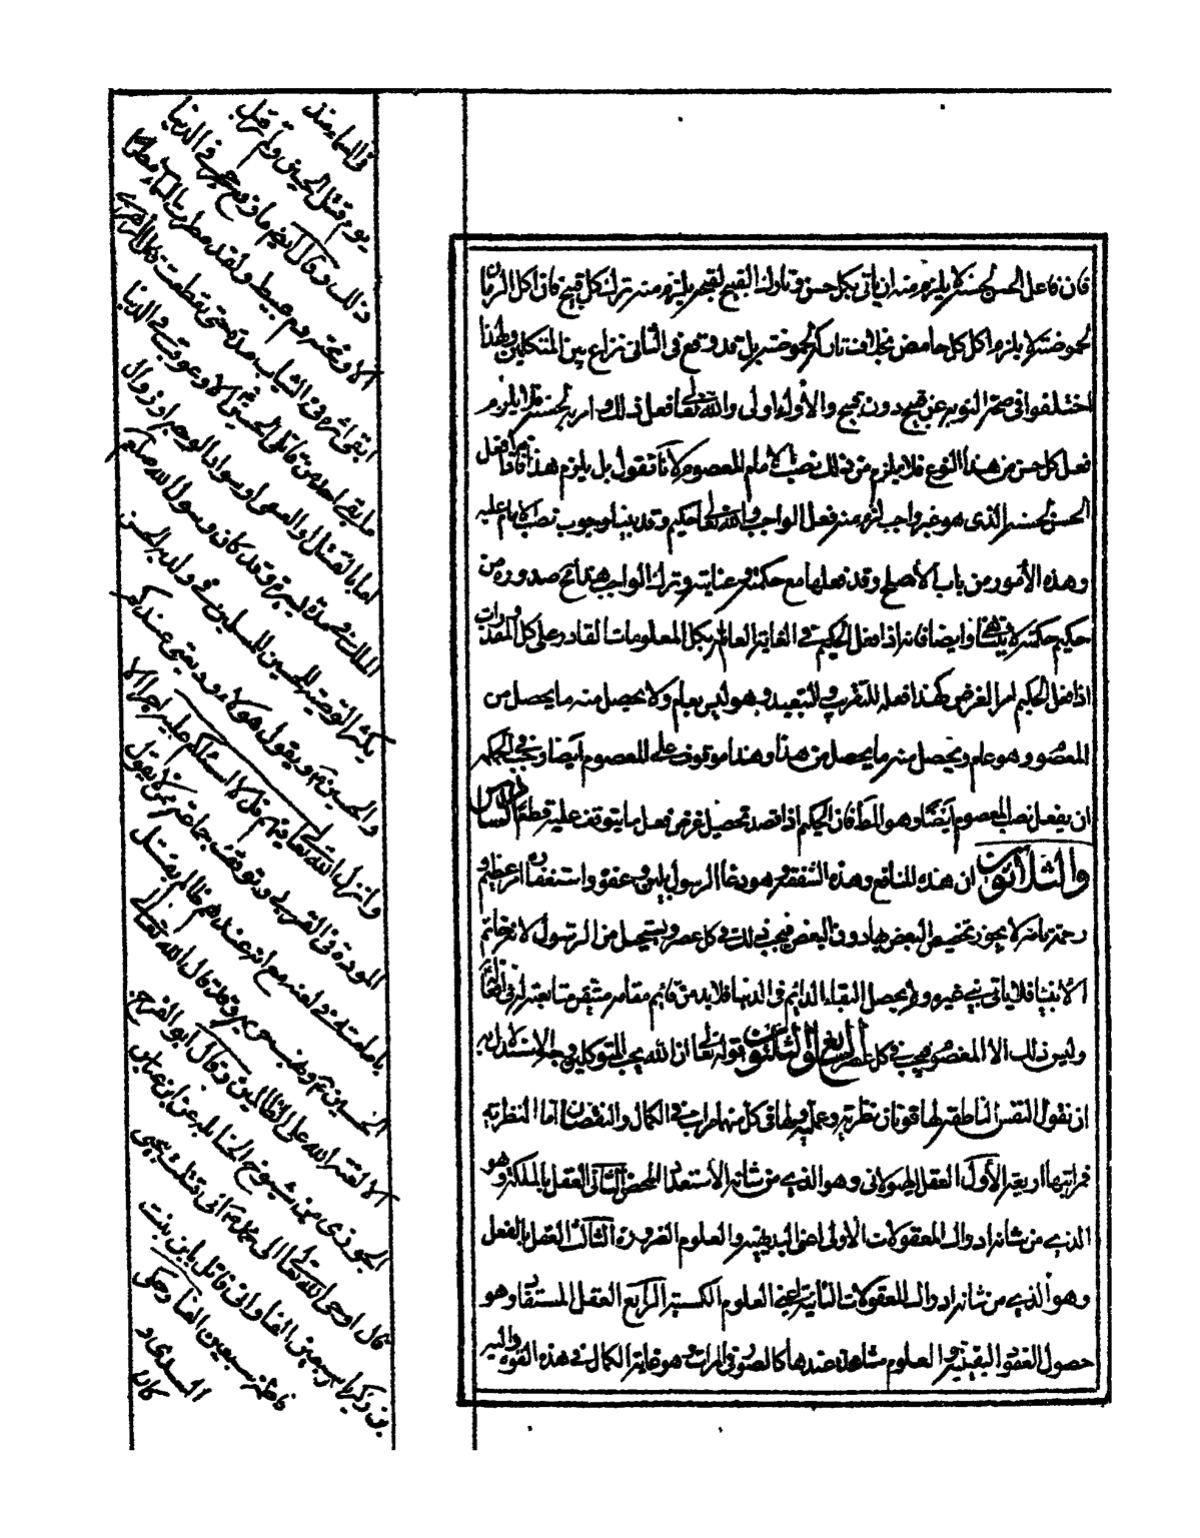 فان فاعل الحسن لحسنه لا يلزم منه ان ياتى بكل حسن وتارك القبيح لقبحه يلزم منه ترك كل قبيح فان اكل الرمان
لحموضته لا يلزم اكل كل حامض بخلاف تارك الحموضة بل قد وقع فى الثانى نزاع بين المتكلمين ولهذا
اختلفوا فى صحة التوبة عن قبيح دون قبيح والأول اولى والله تعالى فعل ذلك و امر به لحسنه فلا يلزم
فعل كل حسن من هذا النوع فلا يلزم من ذلك نصب الامام المعصوم لانا نقول بل يلزم هذا فانه اذا فعل
الحسن لحسنه الذى هو غير واجب لزم منه فعل الواجب والله تعالى حكيم وقد بينا وجوب نصب الامام عليه
وهذه الأمور من باب الأصلح وقد فعلها مع حكمته وعنايته وترك الواجب هذا مح صدوره من
حكيم حكمته لا تتناهى وايضا فانه اذا فعل الحكيم فى الغاية العالم بكل المعلومات القادر على كل المقدورات
اذا فعل الحكيم امرا لغرض كهذا فعله للتقريب والتبعيد وهو ليس بعام ولا يحصل منه ما يحصل من
المعصوم وهو عام ويحصل منه ما يحصل من هذا وهذا موقوف على المعصوم ايضا ويجب فى الحكمة
ان يفعل نصب المعصوم ايضا وهو المط فان الحكيم اذا قصد تحصيل غرض فعل ما يتوقف عليه قطعا السادس
والثلاثون ان هذه المنافع وهذه الشفقة وهو دعاء الرسول بلين وعفوه واستغفاره امر عظيم و
رحمة تامة لا يجوز تخصيص البعض بها دون البعض فيجب ذلك فى كل عصر ويستحيل من الرسول لانه خاتم
الأنبياء فلا ياتى نبى غيره ولم يحصل البقاء الدائم فى الدنيا فلا بد من قائم مقامه متيقن متابعته له فى افعاله
وليس ذلك الا المعصوم فيجب فى كل عصر السابع والثلثون قوله تعالى ان الله يحب المتوكلين وجه الاستدلال به
ان نقول النفس الناطقة لها قوتان نظرية وعملية ولها فى كل منهما مراتب فى الكمال والنقصان اما النظرية
فمراتبها اربعة الأول العقل الهيولانى وهو الذى من شانه الأستعداد المحض الثانى العقل بالملكة وهو
الذى من شانه ادراك المعقولات الأولى اعنى البديهية والعلوم الضرورة الثالث العقل بالفعل
وهو الذى من شانه ادراك المعقولات الثانية اعنى العلوم الكسبية الرابع العقل المستفاد وهو
حصول العقود اليقينية والعلوم مشاهدة عندها كالصور فى المرات وهو غاية الكمال فى هذه القوة واليه
فى السماء منذ
يوم قتل الحسين ولم تر قبل
ذلك وقال لم ما رفع حجر فى الدنيا
الا وتحته دم عبيط ولقد مطرت السماء مطرا
ابقى اثره فى الثياب مدة حتى تقطعت قال الزهرى
ما بقى احد من قاتلى الحسين الا وعوقب فى الدنيا
اما بالقتل او العمى او سواد الوجه او زوال
الملك فى مدة يسيرة وقد كان رسول الله صلعم
يكثر التوصية للمسلمين فى ولديه الحسن
والحسين ويقول هؤلاء وديعتى عندكم
وانزل الله تعالى فيهم قل لا اسئلكم عليه اجرا الا
المودة فى القربى وتوقف جماعة ممن لا يقول
بامامته فى لعنه مع انه عندهم ظالم بقتل
الحسين ع وقد قال الله تعالى
الا لعنة الله على الظالمين وقال ابو الفرج
الجوزى من شيوخ الحنابلة عن ابن عباس
قال اوحى الله تعالى الى محمد ص انى قتلت بيحيى
بن زكريا سبعين الفا وانى قاتل بابن بنت
فاطمة سبعين الفا وحكى
السدى و
كان